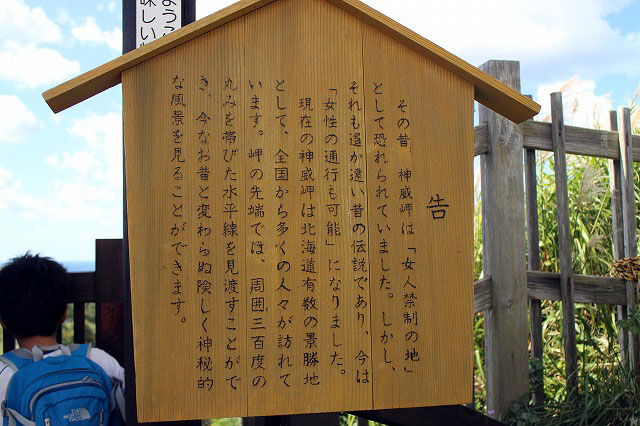 告
その昔 神威岬は「女人禁制の地」
として恐れられていました。しかし、
それも遥か遠い昔の伝説であり、今は
「女性の通行も可能」になりました。
現在の神威岬は北海道有数の景勝地
として、全国から多くの人々が訪れて
います。岬の先端では、周囲三百度の
丸みを帯びた水平線を見渡すことがで
き、今なお昔と変わらぬ険しく神秘的
な風景を見ることができます。
ようこ
味しい
THE NORTH FACE